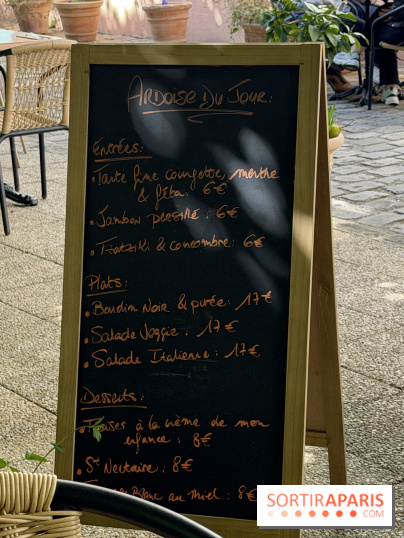 Ardoise Du Jour:
Entrées:
• Tarte fine courgette, menthe
& fêta: 6€
• Jambon persillé: 6€
• Tzatziki & concombre: 6€
Plats:
• Boudin Noir & purée: 17€
• Salade Veggie: 17€
• Salade Italienne: 17€
Desserts:
à la crème de mon
enfance: 8€
• St Nectaire: 8€
Blanc au Miel: 8€
SORTIRAPARIS
.COM